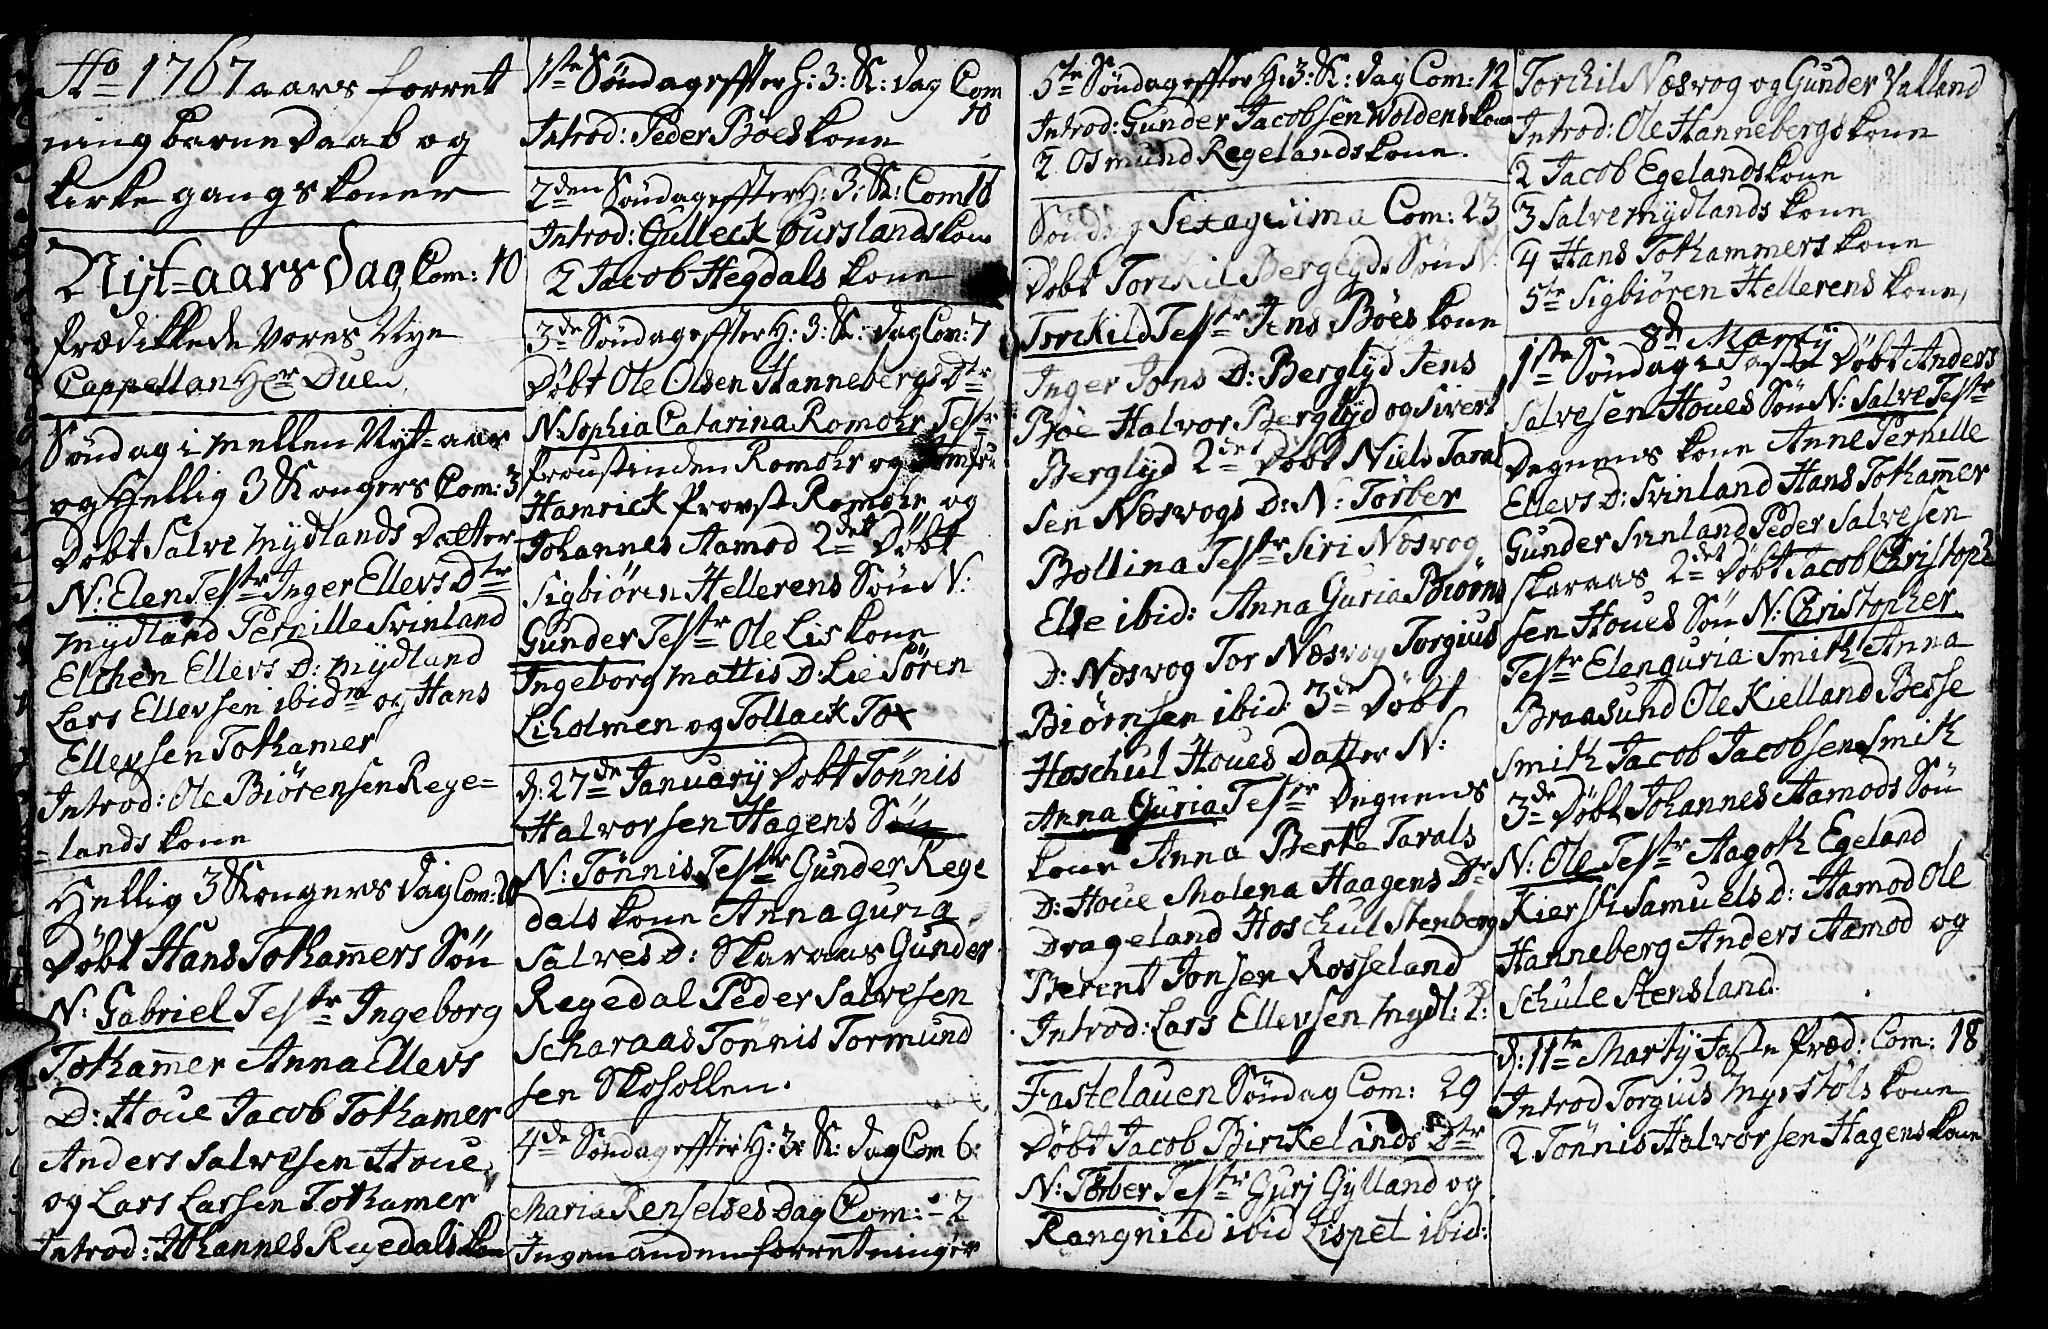 Ao 1767 aars forret
ning barne Daab og
kirke gangs koner
Nijt=aars Dag Com: 10
Prædikkede Vores Nye
Cappellan Hr Due
Søndag i mellen Nyt=aar
og Hellig 3 Kongers Com: 3
Døbt Salve Mydlands Datter
N: Elen Testr Inger Ellevs Dtr
Mydland Pernille Svinland
Elchen Ellevs D: Mydland
Lars Ellevsen ibidm og Hans
Ellevsen Tothamer
Introd: Ole Biörensen Rege=
=lands kone
Hellig 3 Kongers Dag Com: 20
Döbt Hans Tothamers Sön
N: Gabriel Testr Ingeborg
Tothamer Anna Ellevs
D: Houe Jacob Tothamer
Anders Salvesen Houe
og Lars Larsen Tothamer
Introd: Johannes Regedals kone
1ste Söndag effter H: 3: K: Dag Com
10
Introd: Peder Böes kone
2den Söndag effter H: 3: K: Com 18
Introd: Gulleck Ourslands kone
2 Jacob Hegdals kone
3de Söndag effter H: 3: K: Dag Com: 7
Döbt Ole Olsen Hannebergs Dtr
N: Sophia Catarina Romohr Testr
Proustinden Romohr og Jomfru
Hamrick Provst Romohr og
Johannes Aamod 2det Döbt
Sigbiören Hellerens Sön N:
Gunder Testr Ole Lis kone
Ingeborg Mattis D: Lie Sören
Liholmen og Tollack Tox
d: 27de Januarij Döbt Tönnis
Halvorsen Hagens Sön
N: Tönnis Testr Gunder Rege
dals kone Anna Guria
Salves D: Skaraas Gunder
Regedal Peder Salvesen
Scharaas Tönnis Tormund
sen Skofollen.
4de Söndag effter H: 3: K: Dag Com 6:
Maria Renselses Dag Com: - 2
Ingen anden forretninger
5te Söndag effter H: 3: K: Dag Com: 12
Introd: Gunder Jacobsen Woldens kone
2 Osmund Regelands kone.
Söndag Sexagesima Com: 23
Döbt Torckil Berglyds Sön N:
Torckild Testr Jens Böes kone
Inger Jons D: Berglyd Jens
Böe Halvor Berglyd og Sivert
Berglyd 2det Döbt Niels Taral
sen Næsvogs D: N: Torber
Bollina Testr Siri Næsvog
Else ibid: Anna Guria Biörns
D: Næsvog Tor Næsvog Torgius
Biörnsen ibid: 3de Döbt
Hoschul Houes Datter N:
Anna Guria Testr Degnens
kone Anna Berte Tarals
D: Houe Malena Haagens Dr
Drageland Hoschul Stenberg
Berent Jonsen Rosseland
Introd: Lars Ellevsen Mydl: 2:
Fastelauen Söndag Com: 29
Döbt Jacob Birkelands Dtr
N: Torber Testr Gurj Gylland og
Rangnild ibid Lispet ibid:
Torckil Næsvog og Gunder Valland
Introd: Ole Hannebergs kone
2 Jacob Egelands kone
3 Salve Mydlands kone
4 Hans Tothammers kone
5te Sigbiören Hellerens kone,
8de Martij
1ste Söndag i Faste Döbt Anders
Salvesen Houes Sön N: Salve Testr
Degnens kone Anne Pernille
Ellevs D: Svinland Hans Tothamer
Gunder Svinland Peder Salvesen
Skaraas 2det Döbt Jacob Christoph
sen Houes Sön N: Christopher
Testr Elenguria Smith Anna
Braasund Ole Kielland Besse
Smith Jacob Jacobsen Smith
3de Döbt Johannes Aamods Sön
N: Ole Testr Aagoth Egeland
Kiersti Samuels D: Aamod Ole
Hanneberg Anders Aamod og
Schule Stensland.
d: 11te Martij Faste Præd: Com: 18
Introd Torgius Myrstöls kone
2 Tönnis Halvorsen Hagens kone